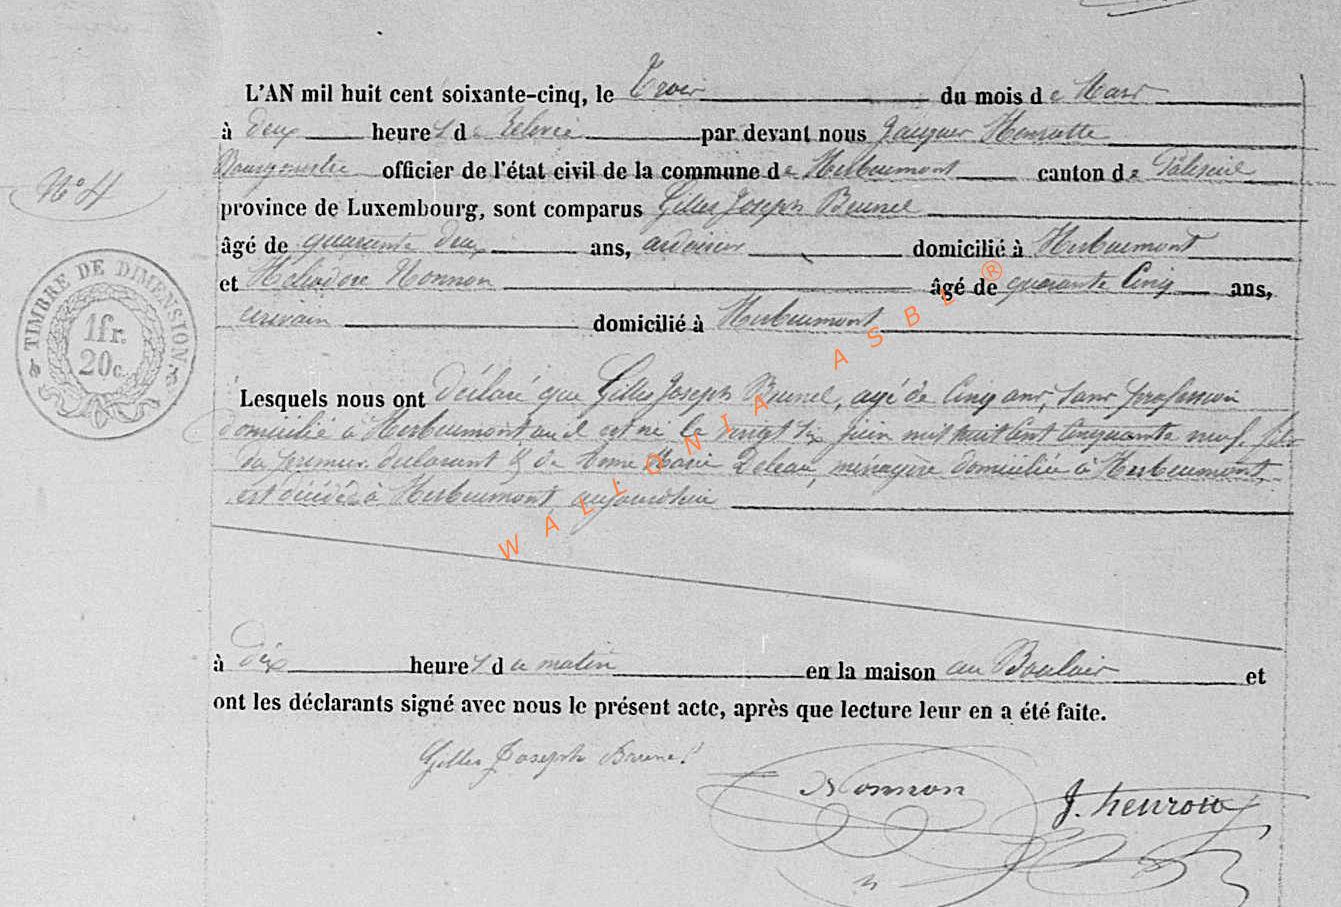 L'AN mil huit cent soixante-cinq, le Trois du mois de Mars
à deux heures de relevée par devant nous Jacques
Bourgmestre officier de l'état civil de la commune de Herbeumont canton de Paliseul
N° 4
province de Luxembourg, sont comparus Gilles Joseph Brunel
âgé de quarante deux ans, ardoisier domicilié à Herbeumont
et Héliodore Nonnon âgé de quarante Cinq ans,
écrivain domicilié à Herbeumont
TIMBRE DE DIMENSION
1 fr.
20 c.
Lesquels nous ont déclaré que Gilles Joseph Brunel, agé de Cinq ans, sans profession
domicilié à Herbeumont, où il est né le vingt six juin mil huit Cent Cinquante neuf, fils
du premier déclarant & de Anne Marie, ménagère domiciliée à Herbeumont,
est décédé à Herbeumont aujourd'hui
à dix heures du matin en la maison au et
ont les déclarants signé avec nous le présent acte, après que lecture leur en a été faite.
Gilles Joseph Brunel
Nonnon
J.
WALLONIA ASBL ®